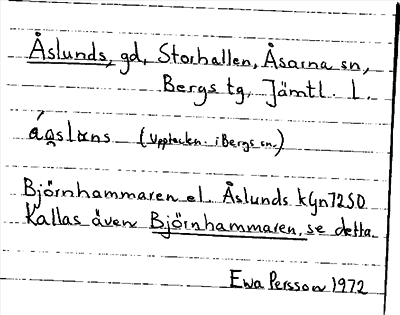 Åslunds, gd, Storhallen, Åsarna sn,
Bergs tg, Jämtl. l.
(Uppteckn. i Bergs sn.)
Björnhammaren el. Åslunds kgn 7250
Kallas även Björnhammaren, se detta.
Ewa Persson 1972